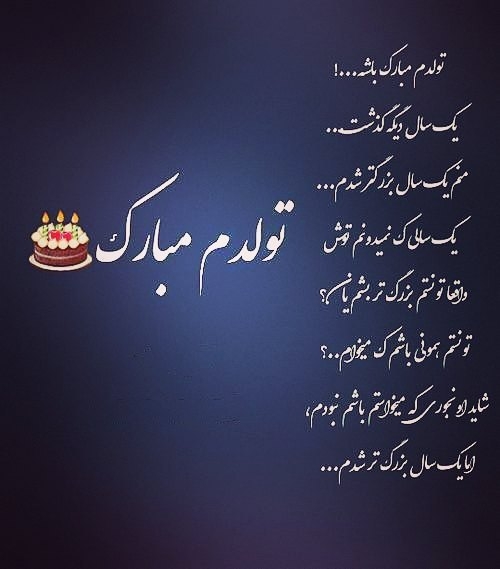 تولدم مبارک باشه...!
یک سال دیگه گذشت...
منم یک سال بزرگتر شدم...
یک سالی ک نمیدونم توش
واقعا تونستم بزرگ تر بشم یا ن؟
تونستم همونی باشم ک میخوام..؟
شاید اونجوری که میخواستم باشم نبودم،
اما یک سال بزرگ تر شدم...
تولدم مبارک